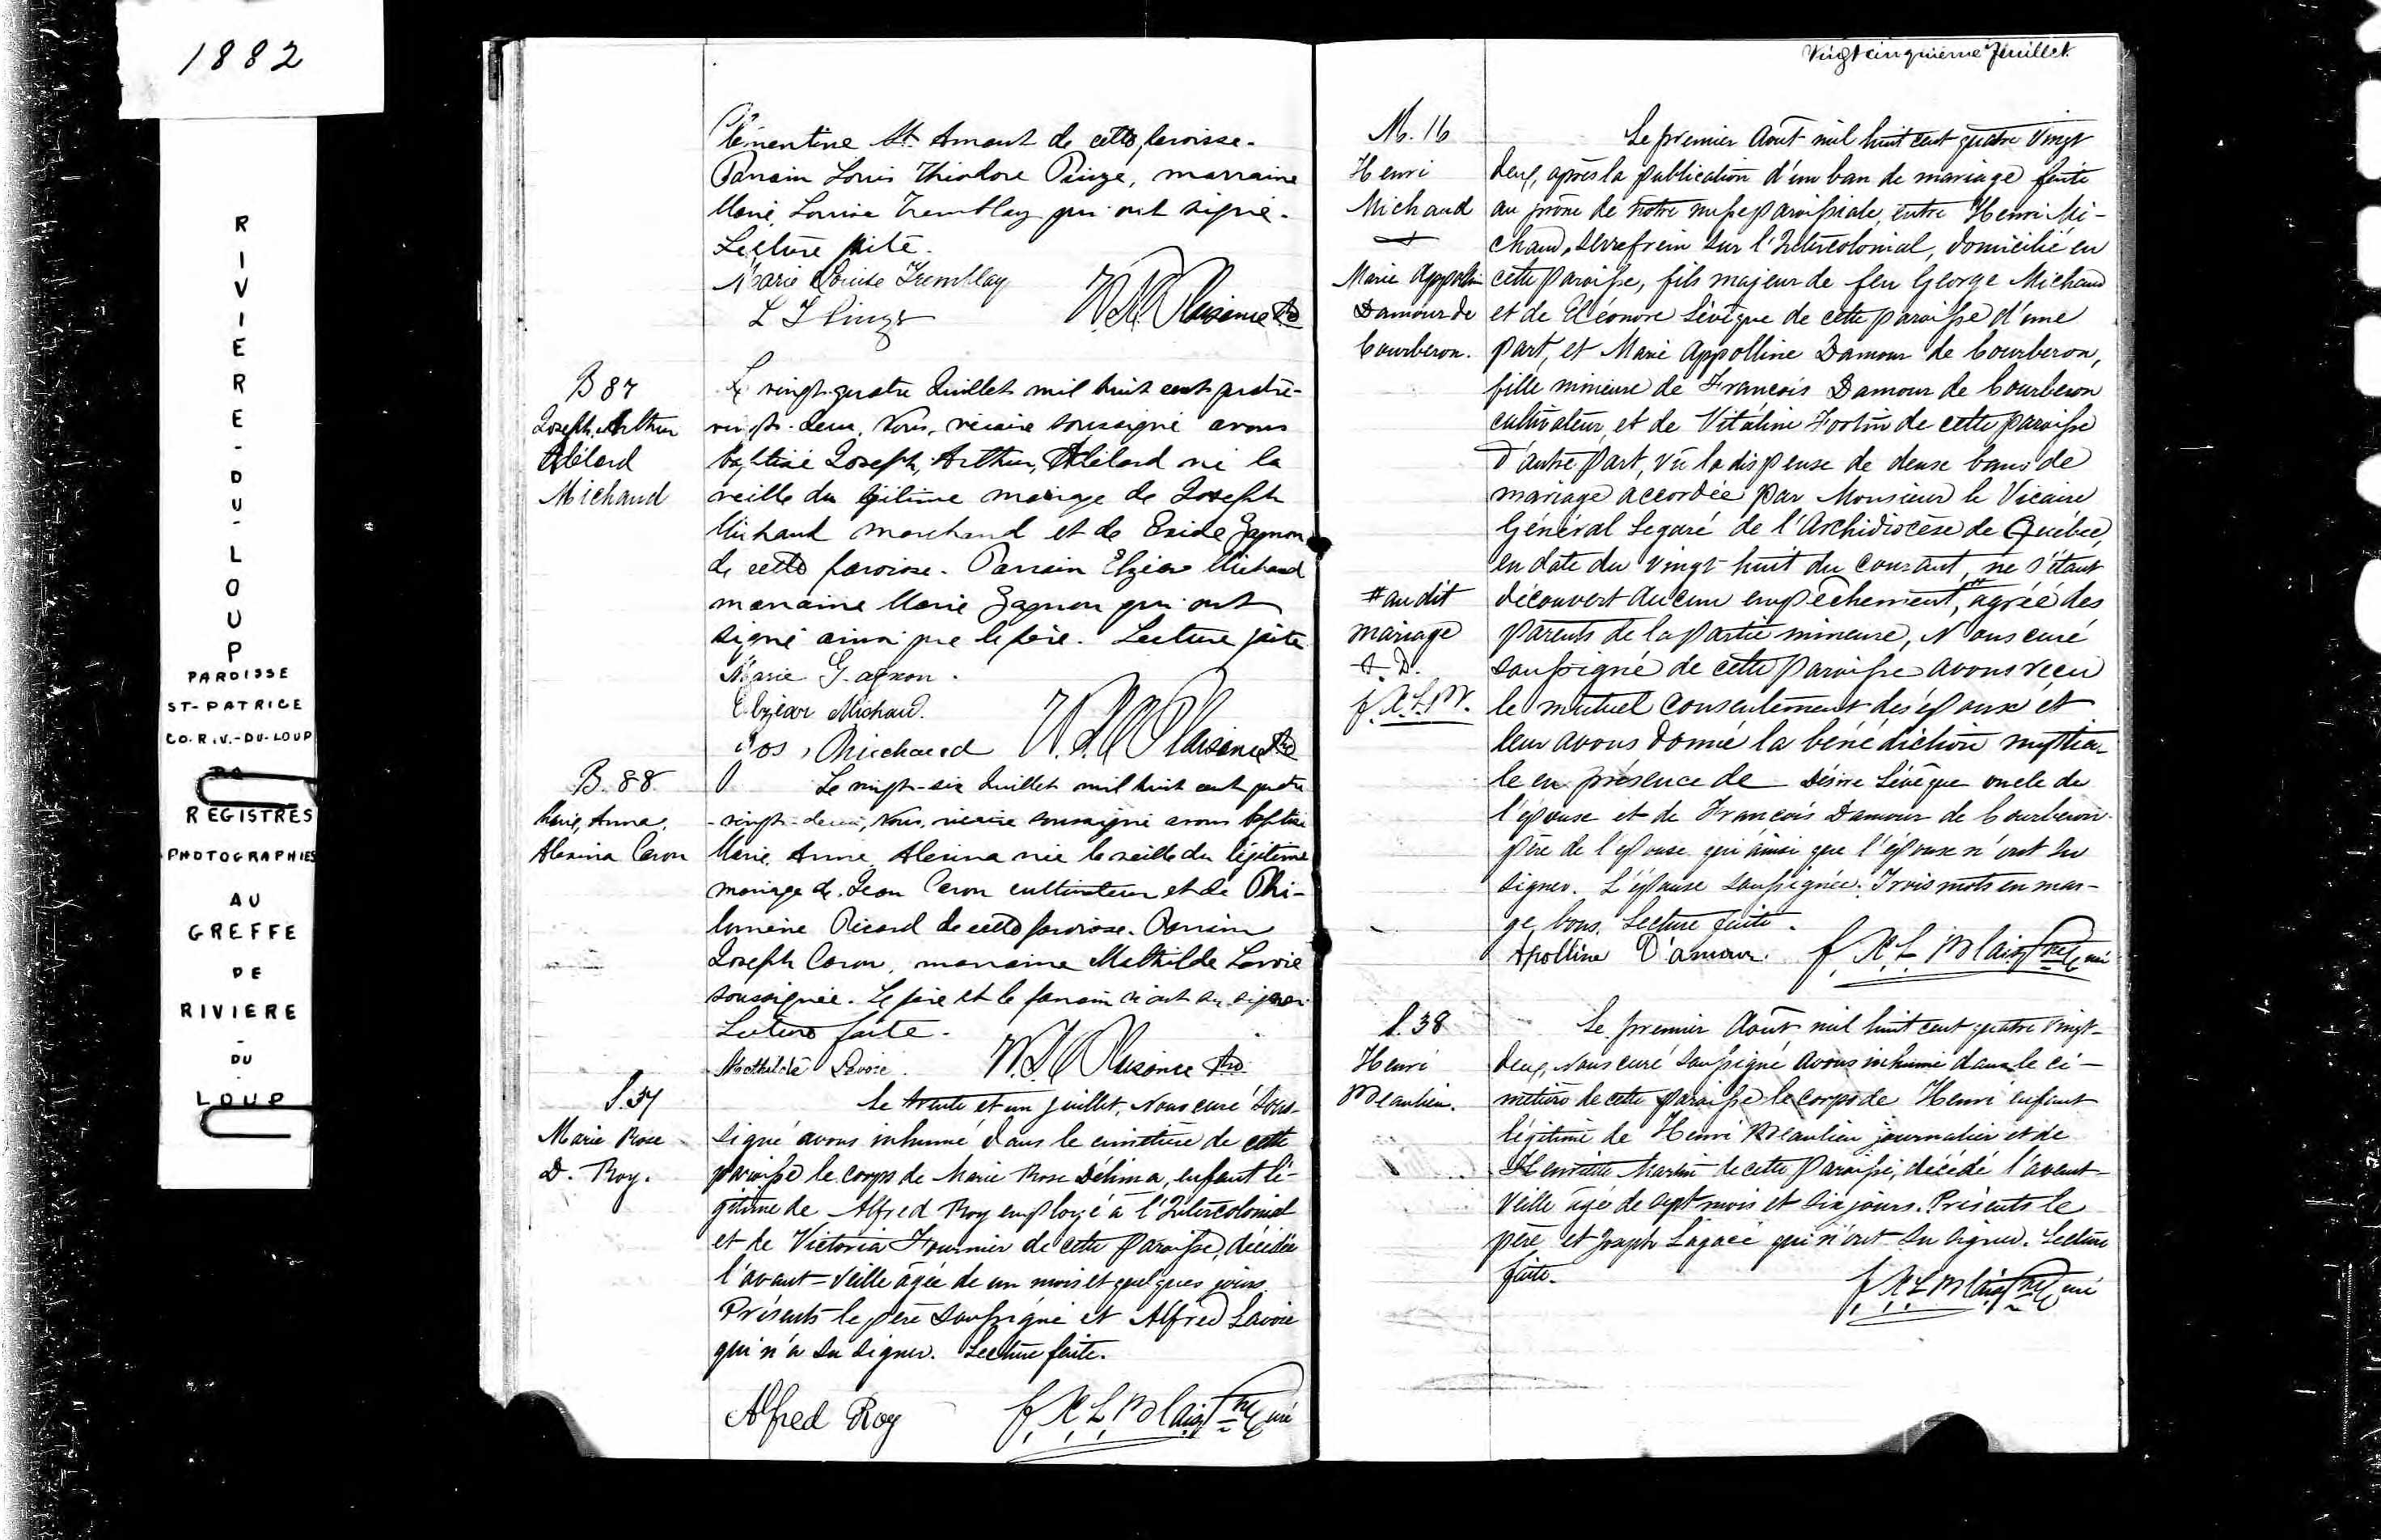 1882
RIVIERE-DU-LOUP
PAROISSE
ST-PATRICE
CO. RIV.-DU-LOUP
REGISTRES
PHOTOGRAPHIES
AU
GREFFE
DE
RIVIERE
-
DU
-
LOUP
Clémentine St. Amant de cette paroisse.
Parrain Louis Théodore Pinze, marraine
Marie Louise Tremblay qui ont signé.
Lecture faite.
Marie Louise Tremblay
B 87
Joseph, Arthur
Michaud
Le vingt-quatre Juillet mil huit cent quatre-
vingt-deux, Nous, vicaire soussigné avons
baptisé Joseph, Arthur, né la
veille du légitime mariage de Joseph
Michaud marchand et de Gagnon
de cette paroisse. Parrain Elzéar Michaud
marraine Marie Gagnon qui ont
signé ainsi que le père. Lecture faite
Marie Gagnon.
Elzéar Michaud.
Jos, Michaud
B. 88
Marie, Anna,
Alexina Caron
Le vingt-six Juillet mil huit cent quatre
-vingt-deux, Nous, vicaire soussigné avons baptisé
Marie, Anne, Alexina née la veille du légitime
mariage de Jean Caron cultivateur et de Phi-
lomène Picard de cette paroisse. Parrain
Joseph Caron, marraine Mathilde Lavoie
soussignée. Le père et le parrain n'ont su signer.
Lecture faite.
Mathilde Lavoie.
S. 37
Marie Rose
D. Roy.
Le trente et un juillet, Nous curé sous-
signé avons inhumé dans le cimetière de cette
paroisse le corps de Marie Rose Délima, enfant lé-
gitime de Alfred Roy employé à l'Intercolonial
et de Victoria Fournier de cette paroisse, décédée
l'avant-veille âgée de un mois et quelques jours.
Présents le père soussigné et Alfred Lavoie
qui n'a su signer. Lecture faite.
Alfred Roy
Vingt cinquième feuillet.
M. 16
Henri
Michaud
&
Marie Appolline
Damour de
Courberon.
Le premier Août mil huit cent quatre vingt
deux, après la publication d'un ban de mariage faite
au prône de notre messe paroissiale, entre Henri Mi-
chaud, serrefrein sur l'Intercolonial, domicilié en
cette paroisse, fils majeur de feu George Michaud
et de Eléonore Lévêque de cette paroisse d'une
part, et Marie Appolline Damour de Courberon,
fille mineure de François Damour de Courberon
cultivateur, et de Vitaline Fortin de cette paroisse
d'autre part, vu la dispense de deux bans de
mariage accordée par Monsieur le Vicaire
Général Legaré de l'Archidiocèse de Québec,
en date du vingt huit du courant, ne s'étant
découvert aucun empêchement,# agréé des
parents de la partie mineure, Nous curé
soussigné de cette paroisse avons reçu
le mutuel consentement des époux et
leur avons donné la bénédiction nuptia-
le en présence de Désiré Lévêque oncle de
l'épouse et de François Damour de Courberon
père de l'épouse qui ainsi que l'époux n'ont su
signer. L'épouse soussignée. Trois mots en mar-
ge, bons. Lecture faite.
Apolline D'amour.
# au dit
mariage
A. D.
S. 38
Henri
Beaulieu.
Le premier Août mil huit cent quatre vingt-
deux, Nous curé soussigné avons inhumé dans le ci-
metière de cette paroisse le corps de Henri enfant
légitime de Henri Beaulieu journalier et de
Henriette Martin de cette paroisse, décédé l'avant-
veille âgé de sept mois et six jours. Présents le
père et Joseph Lagacé qui n'ont su signer. Lecture
faite.